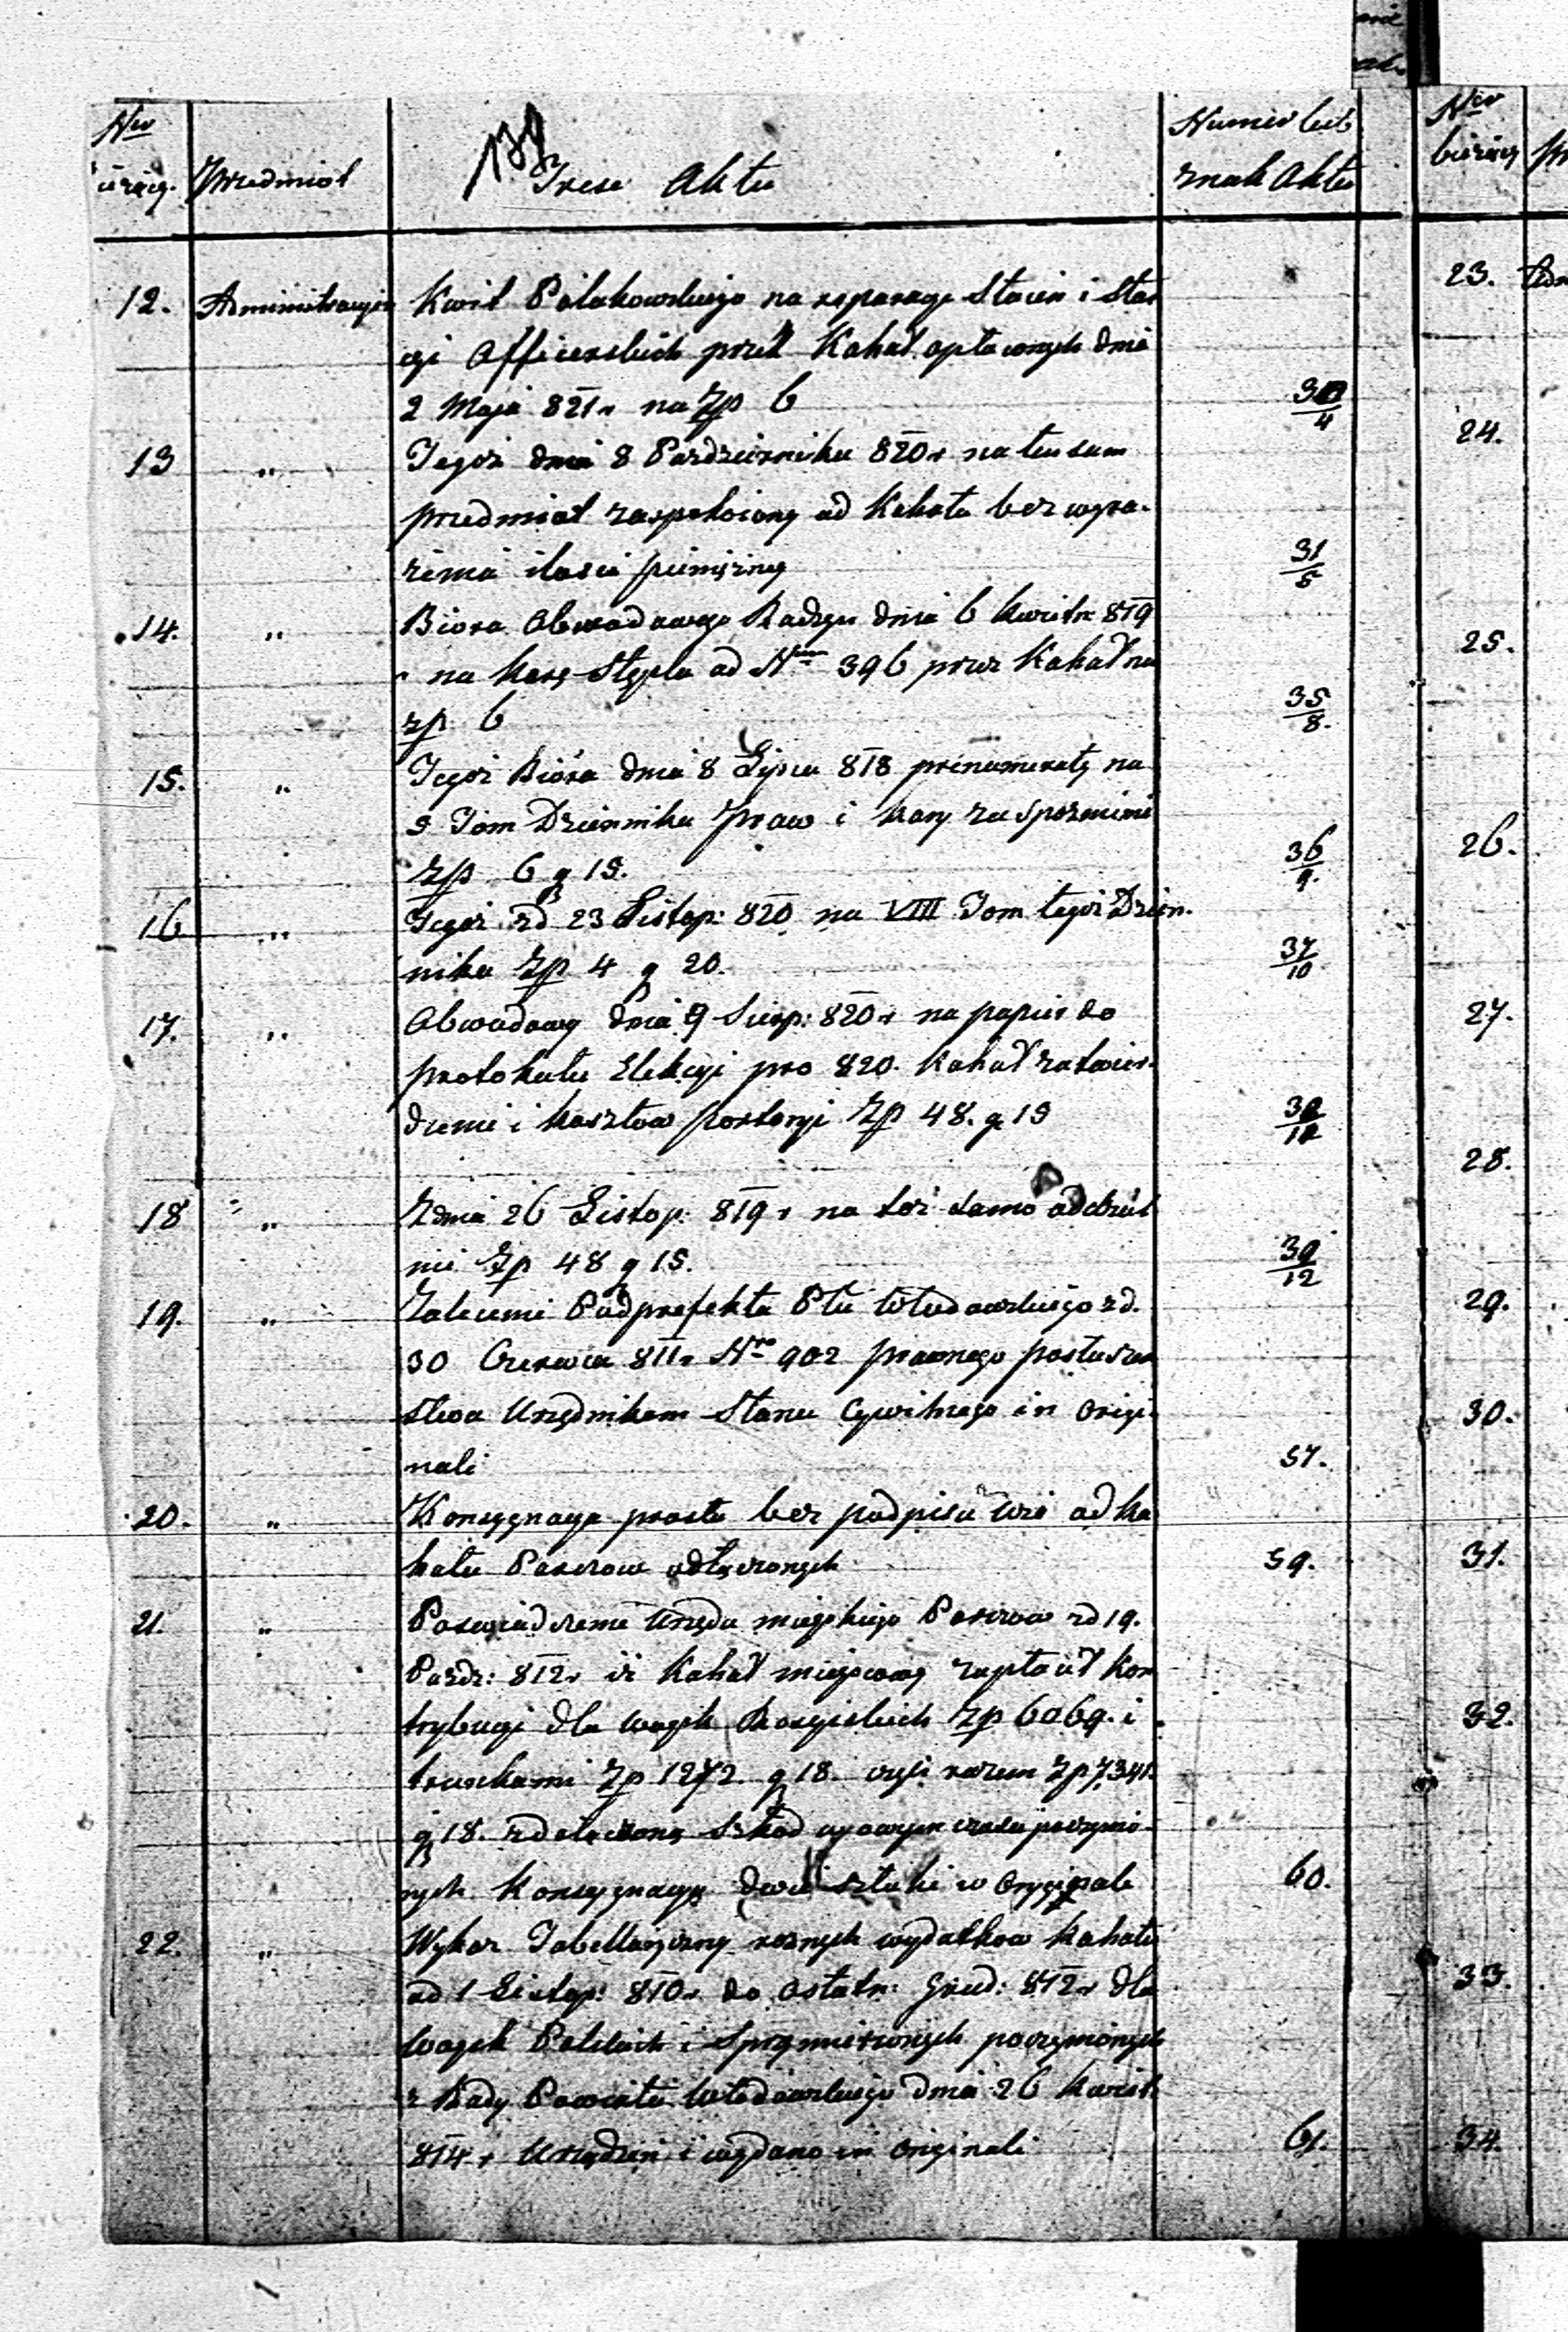 Nro
bieżący. Przedmiot Treść Aktu Numer lub
znak Aktu
138
12. Administracyjn Kwit Polakowskiego na reparacyę Stacien i Sta
cyi Officerskich przez Kahał opłaconych dnia
2 Maja 821 r. na Zp 6 30/4
13 „ Tegoż dnia 8 Pazdziernika 820 r na ten sam
przedmiot zaspokoiony od Kahału bez wyra-
żenia ilości pieniężney 31/5
14. „ Biora Obwodowego Radzyn dnia 6 Kwietn 819
r na karę Stępla od Nrm 396 przez Kahał na
zp 6 35/8.
15. „ Tegoż Bióra dnia 8 Lipca 818 prenumeratę na
5 Tom Dziennika Praw i kary za spoznienie
zp 6 g 15. 36/9.
16 „ Tegoż zd 23 Listop: 820 na VIII Tom tegoż Dzien-
nika Zp 4 g 20. 37/10
17. „ Obwodowy dnia 9 Sierp: 820 r na papier do
protokułu Elekcyi pro 820. Kahał zatwier-
dzenie i kosztow portoryi Zp 48. g 15
18 „ Z dnia 26 Listop: 819 r na toż samo oddziel
nie Zp 48 g 15. 39/12
19. „ Zalecenie Podprefekta Ptu Włodawskiego zd.
30 Czerwca 811 r. Nro 902 prawnego posłuszeń
stwa Urzędnikom Stanu Cywilnego in Origi-
nali 57.
20. „ Konsygnacya prosta bez podpisu Wsi od Ka
hału Parczow odłączonych 59.
21. „ Poswiadczenie Urzędu mieyskiego Parczow zd 19.
Pazdz: 812 r iż Kahał mieyscowy zapłacił Kon
trybucyi dla Woysk Rossyiskich Zp 6069. i
trunkami Zp 1272. g 18. czyli razem Zp 7341.
g 18. z dołączoną Szkod w owym czasie poczynio-
nych Konsygnacyą dwie sztuki w Oryginale 60.
22. „ Wykaz Tabellaryczny roznych wydatkow Kahału
od 1 Listop: 810 r. do ostatn: Grud: 812 r dla
Woysk Polskich i Sprzymierzonych poczynionych
z Rady Powiatu Włodawskiego dnia 26 Kwiet.
814 r Urzędzen i wydano in originali 61.
Nro
bieżący
23.
24.
25.
26.
27.
28.
29.
30.
31.
32.
33.
34.